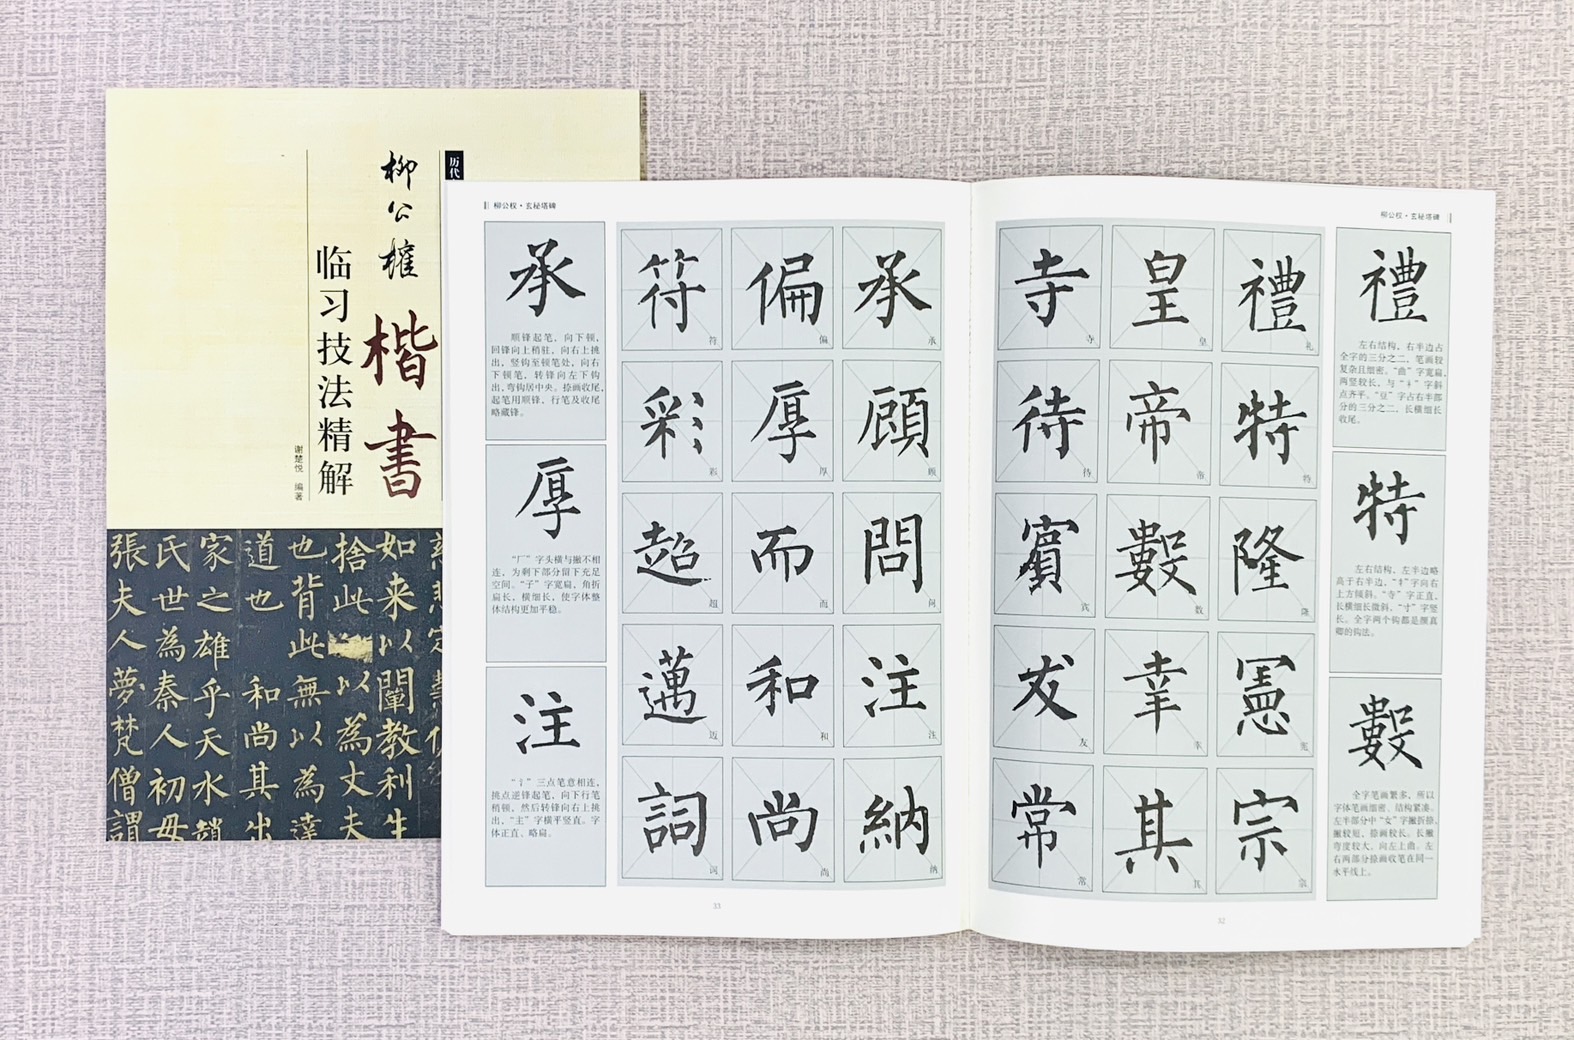 历代
柳公權
楷書
临习技法精解
谢楚悦 编著
如来以闡教利生
捨此以為丈夫
也背此無以為達
道也 和尚其出
家之雄乎天水趙
氏世為秦人初母
張夫人夢梵僧謂
柳公权·玄秘塔碑
禮
左右结构,右半边占
全字的三分之二,笔画较
复杂且细密。“曲”字宽扁,
两竖较长,与“礻”字斜
点齐平。“豆”字占右半部
分的三分之二,长横细长
收尾。
特
左右结构,左半边略
高于右半边,“牜”字向右
上方倾斜。“寺”字正直,
长横细长微斜,“寸”字竖
长。全字两个钩都是颜真
卿的钩法。
數
全字笔画繁多,所以
字体笔画细密、结构紧凑。
左半部分中“女”字撇折捺,
撇较短,捺画较长。长撇
弯度较大,向左上曲。左
右两部分捺画收笔在同一
水平线上。
禮 礼
特 特
隆 隆
憲 宪
宗 宗
皇 皇
帝 帝
數 数
幸 幸
其 其
寺 寺
待 待
賓 宾
友 友
常 常
32
柳公权·玄秘塔碑
承 承
顧 顾
問 问
注 注
納 纳
偏 偏
厚 厚
而 而
和 和
尚 尚
符 符
彩 彩
超 超
邁 迈
詞 词
承
顺锋起笔,向下顿,
回锋向上稍驻,向右上挑
出,竖钩至顿笔处,向右
下顿笔,转锋向左下钩
出,弯钩居中央。捺画收尾,
起笔用顺锋,行笔及收尾
略藏锋。
厚
“厂”字头横与撇不相
连,为剩下部分留下充足
空间。“子”字宽扁,角折
扁长,横细长,使字体整
体结构更加平稳。
注
“氵”三点笔意相连,
挑点逆锋起笔,向下行笔
稍顿,然后转锋向右上挑
出,“主”字横平竖直。字
体正直、略扁。
33